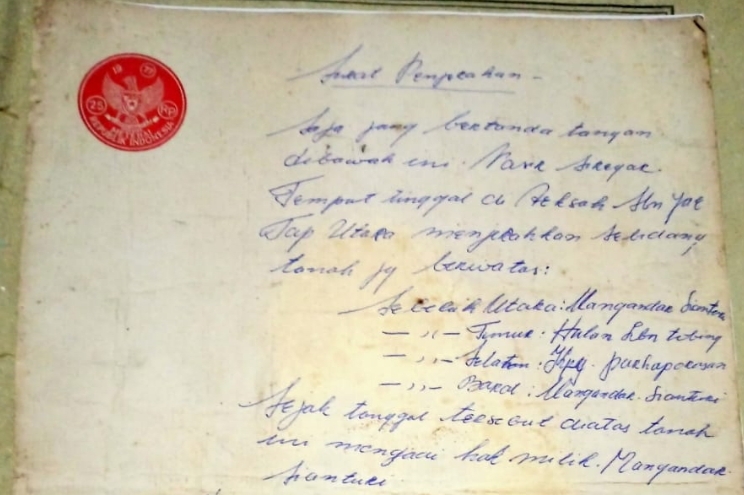 19 79
25 Rp
METERAI
REPUBLIK INDONESIA
Surat Penjerahan -
Saja jang bertanda tangan
dibawah ini. Siregar.
Tempat tinggal di
Tap Utara menjerahkan sebidang
tanah jg berwatas:
Sebelah Utara: Mangandar Sianturi
— ,, — Timur. Hulan Lbn tobing
— ,, — Selatan:
— ,, — Barat: Mangandar Sianturi
Sejak tanggal tersebut diatas tanah
ini mengadi hak milik. Mangandar
Sianturi.